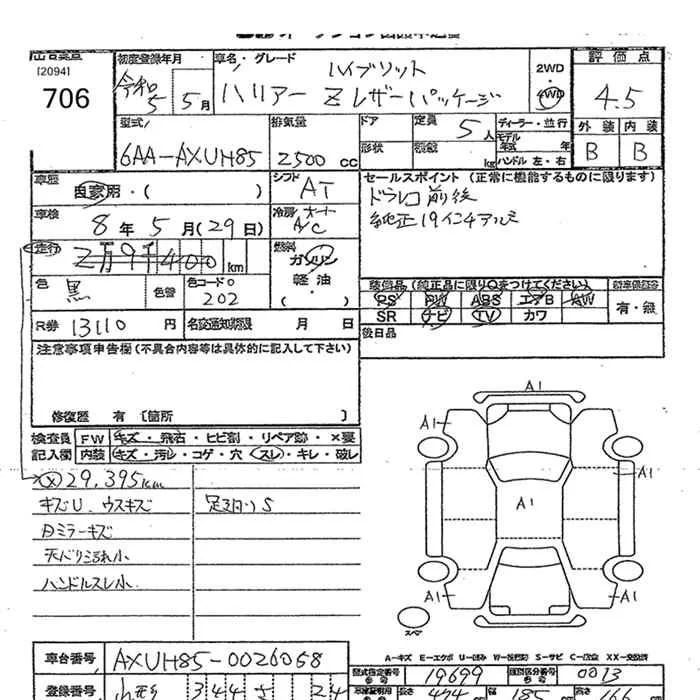 [2094]
706
初度登録年月
令和5
5月
車名・グレード
ハイブリット
ハリアー Zレザーパッケージ
2WD
・
4WD
評価点
4.5
外装
内装
B
B
型式
6AA-AXUH85
排気量
2500 cc
ドア
定員
5人
形状
kg
ディーラー・並行
モデル
年式 年
ハンドル 左・右
車歴
自家用・( )
シフト
AT
セールスポイント (正常に機能するものに限ります)
ドラレコ前後
純正19インチアルミ
車検
8年5月(29日)
冷房
A/C
走行
2万9千400km
燃料
ガソリン
軽油
・
( )
色
黒
色替
色コードNo
202
装備品(純正品に限り○をつけてください)
PS
PW
ABS
エアB
AW
SR
ナビ
TV
カワ
有・無
R券
13110 円
名変通知期限 月 日
後日品
注意事項申告欄(不具合内容等は具体的に記入して下さい)
修復歴 有 〔箇所 〕
検査員
記入欄
FW
キズ・飛石・ヒビ割・リペア跡・×要
内装
キズ・汚レ・コゲ・穴・スレ・キレ・破レ
29,395km
キズU、ウスキズ
足廻りS
ミラーキズ
天バリ汚れ小
ハンドルスレ小
A1
A1
A1
A1
A1
A1
A1
スペア
A-キズ E-エクボ U-凹み W-補修跡 S-サビ C-腐食 X-要交換 XX-交換済
車台番号
AXUH85-0026058
型式指定番号
19699
類別区分番号
0073
登録番号
344
24
長さ
474
幅
185
高さ
166